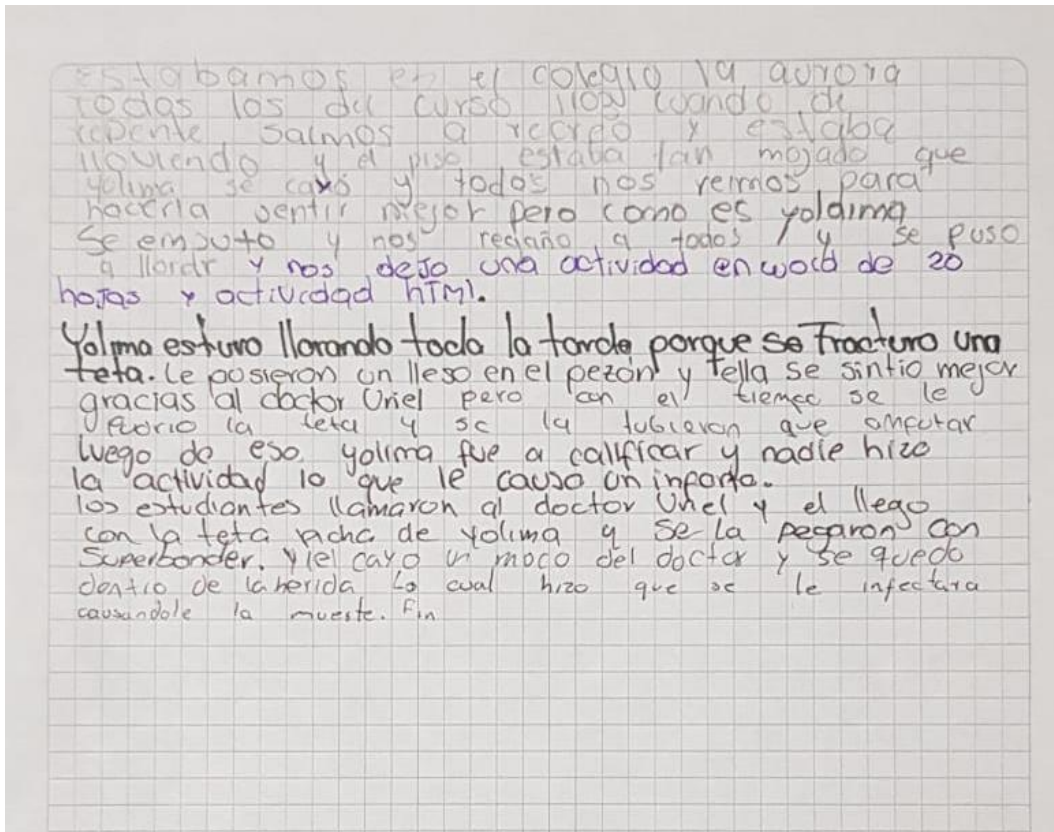 Estabamos en el colegio la aurora
todas los del curso 1102 cuando de
repente salmos a recreo y estaba
lloviendo y el piso estaba tan mojado que
yolima se cayó y todos nos reimos para
hacerla sentir mejor pero como es yoldima
se emputo y nos regaño a todos y se puso
a llorar y nos dejo una actividad en word de 20
hojas y actividad hTml.
Yolima estuvo llorando toda la tarde porque se Fracturo una
teta. Le posieron un lleso en el pezón y ella se sintio mejor
gracias al doctor Uriel pero con el tiempo se le
pudrio la teta y se la tubieron que amputar
luego de eso yolima fue a calificar y nadie hizo
la actividad lo que le causo un infarto.
los estudiantes llamaron al doctor Uriel y el llego
con la teta de yolima y se la pegaron con
Superbonder. Y le cayo un moco del doctor y se quedo
dentro de la herida Lo cual hizo que se le infectara
causandole la muerte. Fin